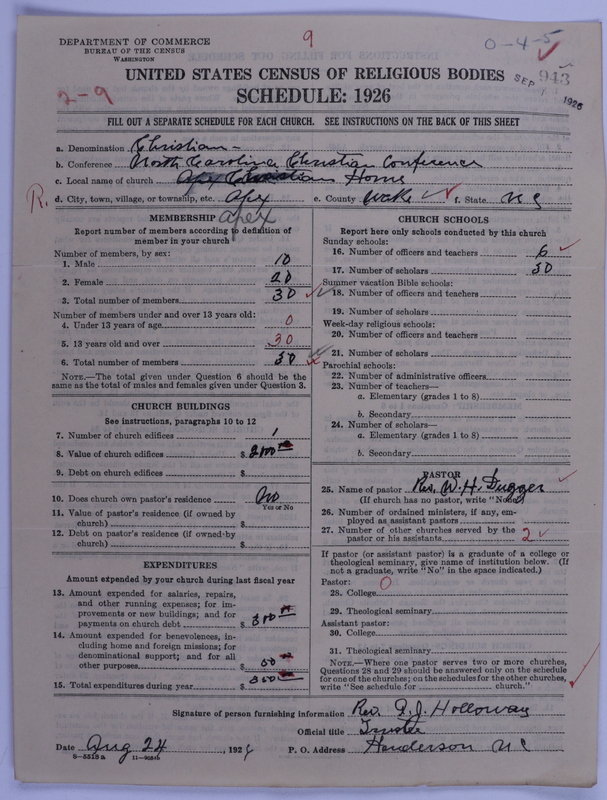 9
0-4-5
DEPARTMENT OF COMMERCE
BUREAU OF THE CENSUS
WASHINGTON
SEP 943 1926
2-9
UNITED STATES CENSUS OF RELIGIOUS BODIES
SCHEDULE: 1926
FILL OUT A SEPARATE SCHEDULE FOR EACH CHURCH. SEE INSTRUCTIONS ON THE BACK OF THIS SHEET
a. Denomination Christian-
b. Conference North Carolina Christian Conference
c. Local name of church Apex Christian Home
R. d. City, town, village, or township, etc. Apex e. County Wake ✓ f. State N C
MEMBERSHIP Apex
Report number of members according to definition of
member in your church
Number of members, by sex:
1. Male 10
2. Female 20
3. Total number of members 30
Number of members under and over 13 years old:
4. Under 13 years of age 0
5. 13 years old and over 30
6. Total number of members 30
NOTE.—The total given under Question 6 should be the
same as the total of males and females given under Question 3.
CHURCH BUILDINGS
See instructions, paragraphs 10 to 12
7. Number of church edifices 1
8. Value of church edifices $ 2000
9. Debt on church edifices $
10. Does church own pastor's residence No
Yes or No
11. Value of pastor's residence (if owned by
church) $
12. Debt on pastor's residence (if owned by
church) $
EXPENDITURES
Amount expended by your church during last fiscal year
13. Amount expended for salaries, repairs,
and other running expenses; for im-
provements or new buildings; and for
payments on church debt $ 300
14. Amount expended for benevolences, in-
cluding home and foreign missions; for
denominational support; and for all
other purposes $ 50
15. Total expenditures during year $ 350
CHURCH SCHOOLS
Report here only schools conducted by this church
Sunday schools:
16. Number of officers and teachers 6 ✓
17. Number of scholars 50
Summer vacation Bible schools:
18. Number of officers and teachers
19. Number of scholars
Week-day religious schools:
20. Number of officers and teachers
21. Number of scholars
Parochial schools:
22. Number of administrative officers
23. Number of teachers—
a. Elementary (grades 1 to 8)
b. Secondary
24. Number of scholars—
a. Elementary (grades 1 to 8)
b. Secondary
PASTOR
25. Name of pastor Rev. W. H. Dugger
(If church has no pastor, write "None")
26. Number of ordained ministers, if any, em-
ployed as assistant pastors
27. Number of other churches served by the
pastor or his assistants 2 ✓
If pastor (or assistant pastor) is a graduate of a college or
theological seminary, give name of institution below. (If
not a graduate, write "No" in the space indicated.)
Pastor: 0
28. College
29. Theological seminary
Assistant pastor:
30. College
31. Theological seminary
NOTE.—Where one pastor serves two or more churches,
Questions 28 and 29 should be answered only on the schedule
for one of the churches; on the schedules for the other churches,
write "See schedule for church."
Signature of person furnishing information Rev. P. J. Holloway
Official title Trustee
Date Aug 24, 1926 P. O. Address Henderson N C
8-5518a 11-9084b